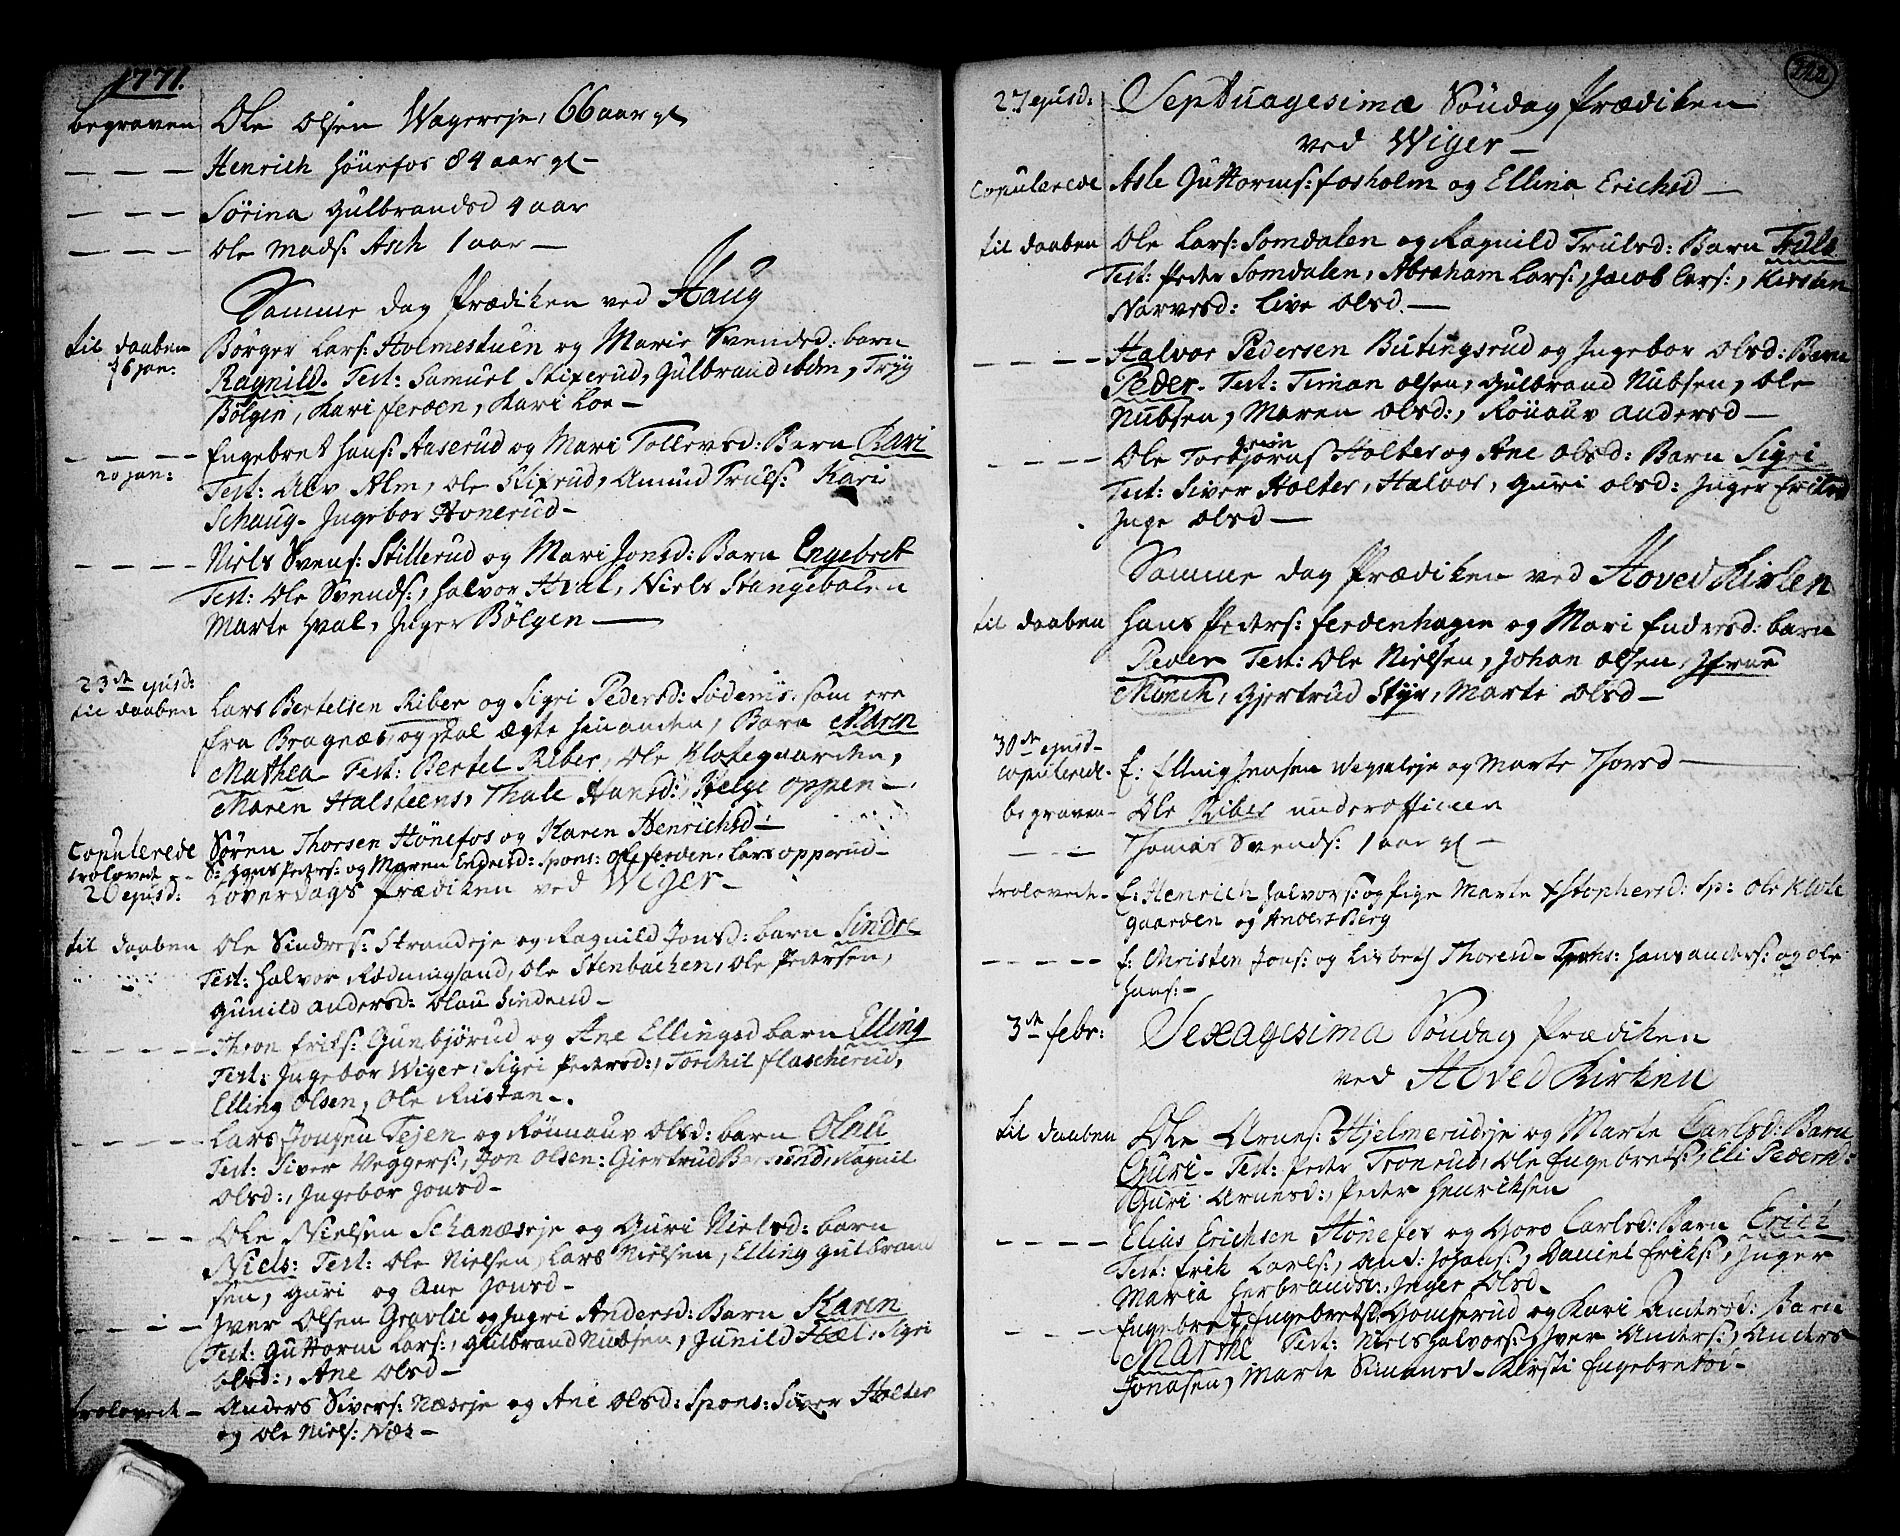 1771.
begraven Ole Olsen Wagereje, 66 aar gl
— — — Henrich Hönefos 84 aar gl —
— — — Sörina Gulbrandsd 4 aar
— — — Ole Mads: Asch 1 aar —
Samme dag Prædiken ved Haug
til daaben Börger Lars: Holmestuen og Marie Svendsd: barn
6 jan: Ragnild. Test: Samuel Skiferud, Gulbrand ibdm, Tryg
Bölgen, Kari ferden, Kari Loe —
— — — — Engebret Hans: Aaserud og Mari Tollevsd: Barn Kari
20 jan: Test: Alv Alm, Ole Skiferud, Amund Truls: Kari
Schaug- Ingebor Honerud-
— — — — Niels Svens: Stillerud og Mari Jonsd: Barn Engebret
Test: Ole Svends:, Halvor Hval, Niels Stangebalen
Marte Hval, Inger Bölgen —
23de ejusd:
til daaben Lars Bertelsen Riber og Sigri Pedersd: som ere
fra Bragnæs, og skal ægte hinanden, Barn Maren
Mathea- Test: Bertel Riber, Ole Klokegaarden,
Maren Halsteens, Thale Hansd:, Helge oppen —
Copulerede Sören Thorsen Hönefos og Karen Henrichsd —
trolovede -- S: Hans Peders: og Maren Endresd: Spons: Ole ferden. Lars opperud-
26 ejusd: Löverdags Prædiken ved Wiger —
til daaben Ole Sindres: Strandeje og Ragnild Jonsd: barn Sindre
Test: Halvor Rødningsand, Ole Stenbacken, Ole Pedersen,
Gunild Andersd: Olau Sindresd —
— — — — Thron Eriks: Gunbjörud og Ane Ellingsd barn Elling
Test: Ingebor Wiger, Sigri Pedersd:, Torchil flascherud,
Elling Olsen, Ole Rustan —.
— — — — Lars Jonsen Tejen og Rönnauv Olsd: barn Olau
Test: Siver Veggers:, Jon Olsen: Giertrud Ragnil
Olsd:, Ingebor Jonsd —
— — — — Ole Nielsen Schanæseje og Guri Nielsd: barn
Niels: Test: Ole Nielsen, Lars Nielsen, Elling Gulbrand
sen, Guri og Ane Jonsd —
— — — — Iver Olsen Gravlie og Ingri Andersd: Barn Karen
Test: Guttorm Lars:, Gulbrand Nubsen, Gunild Hæl, Sigri
Olsd:, Ane Olsd —
trolovede — Anders Sivers: Næseje og Ane Olsd: Spons: Siver Holter
og Ole Niels: Næs —
212
27 ejusd: Septuagesimæ Söndag Prædiken
ved Wiger —
Copulerede Asle Guttorms: fosholm og Ellina Erichsd —
til daaben Ole Lars: Somdalen og Ragnild Trulsd: Barn Truls
Test: Peder Somdalen, Abraham Lars:, Jacob Lars:, Kirsten
Narvesd: Live Olsd. —
— — — — Halvor Pedersen Butingsrud og Ingebor Olsd: Barn
Peder- Test: Timan Olsen, Gulbrand Nubsen, Ole
Nubsen, Maren Olsd:, Rönauv Andersd —
— — — — Ole Torbjörns Holter og Ane Olsd: Barn Sigri
Test: Siver Holter, Halvor, Guri Olsd: Inger Eriksd
Inge Olsd —
Samme dag Prædiken ved Hoved Kirken
til daaben Hans Peders: ferdenhagen og Mari Endersd: barn
Peder Test: Ole Nielsen, Johan Olsen, Jfrue
Münch, Gjertrud Styr, Marte Olsd —
30de ejusd-
Copulerede- E: Elling Jensen Wegsteje og Marte Thorsd —
begraven- Ole Riber underofficeer
— — Thomas Svends: 1 aar gl —
trolovede- E: Henrich Halvors: og Pige Marte Xstophersd: Sp: Ole Kloke
gaarden og Anders Berg
— — — — — E: Christen Jons: og Lisbeth Thoresd — Spons: Hans Anders: og Ole
Hans: —
3de febr: Sexagesima Söndag Prædiken
ved Hoved Kirken
til daaben Ole Arnes: Hjelmerudeje og Marte Carlsd: Barn
Guri- Test: Peder Tronrud, Ole Engebrets:, Eli Pedersd:
Guri Arnesd:, Peder Henriksen
— — — — Elius Erichsen Hönefos og Goro Carlsd: Barn Erich
Test: Erik Carls:, And: Johans:, Daniel Eriks:, Inger
Maria Herbrandsd:, Inger Olsd.
— — — Engebret Engebretsen Gomserud og Kari Andersd: Barn
Marthe Test: Niels Halvors:, Iver Anders:, Anders
Jonasen, Marte Simensd — Kirsti Engebretsd —